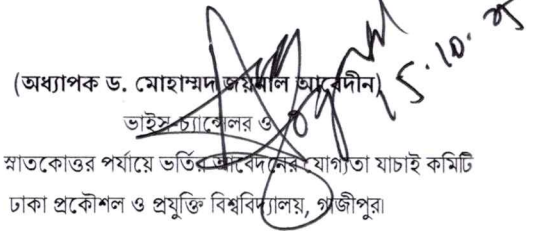 15.10.25
(অধ্যাপক ড. মোহাম্মদ জয়নাল আবেদীন)
ভাইস-চ্যান্সেলর ও
স্নাতকোত্তর পর্যায়ে ভর্তির আবেদনের যোগ্যতা যাচাই কমিটি
ঢাকা প্রকৌশল ও প্রযুক্তি বিশ্ববিদ্যালয়, গাজীপুর।